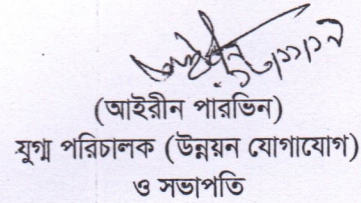 (আইরীন পারভিন)
যুগ্ম পরিচালক (উন্নয়ন যোগাযোগ)
ও সভাপতি